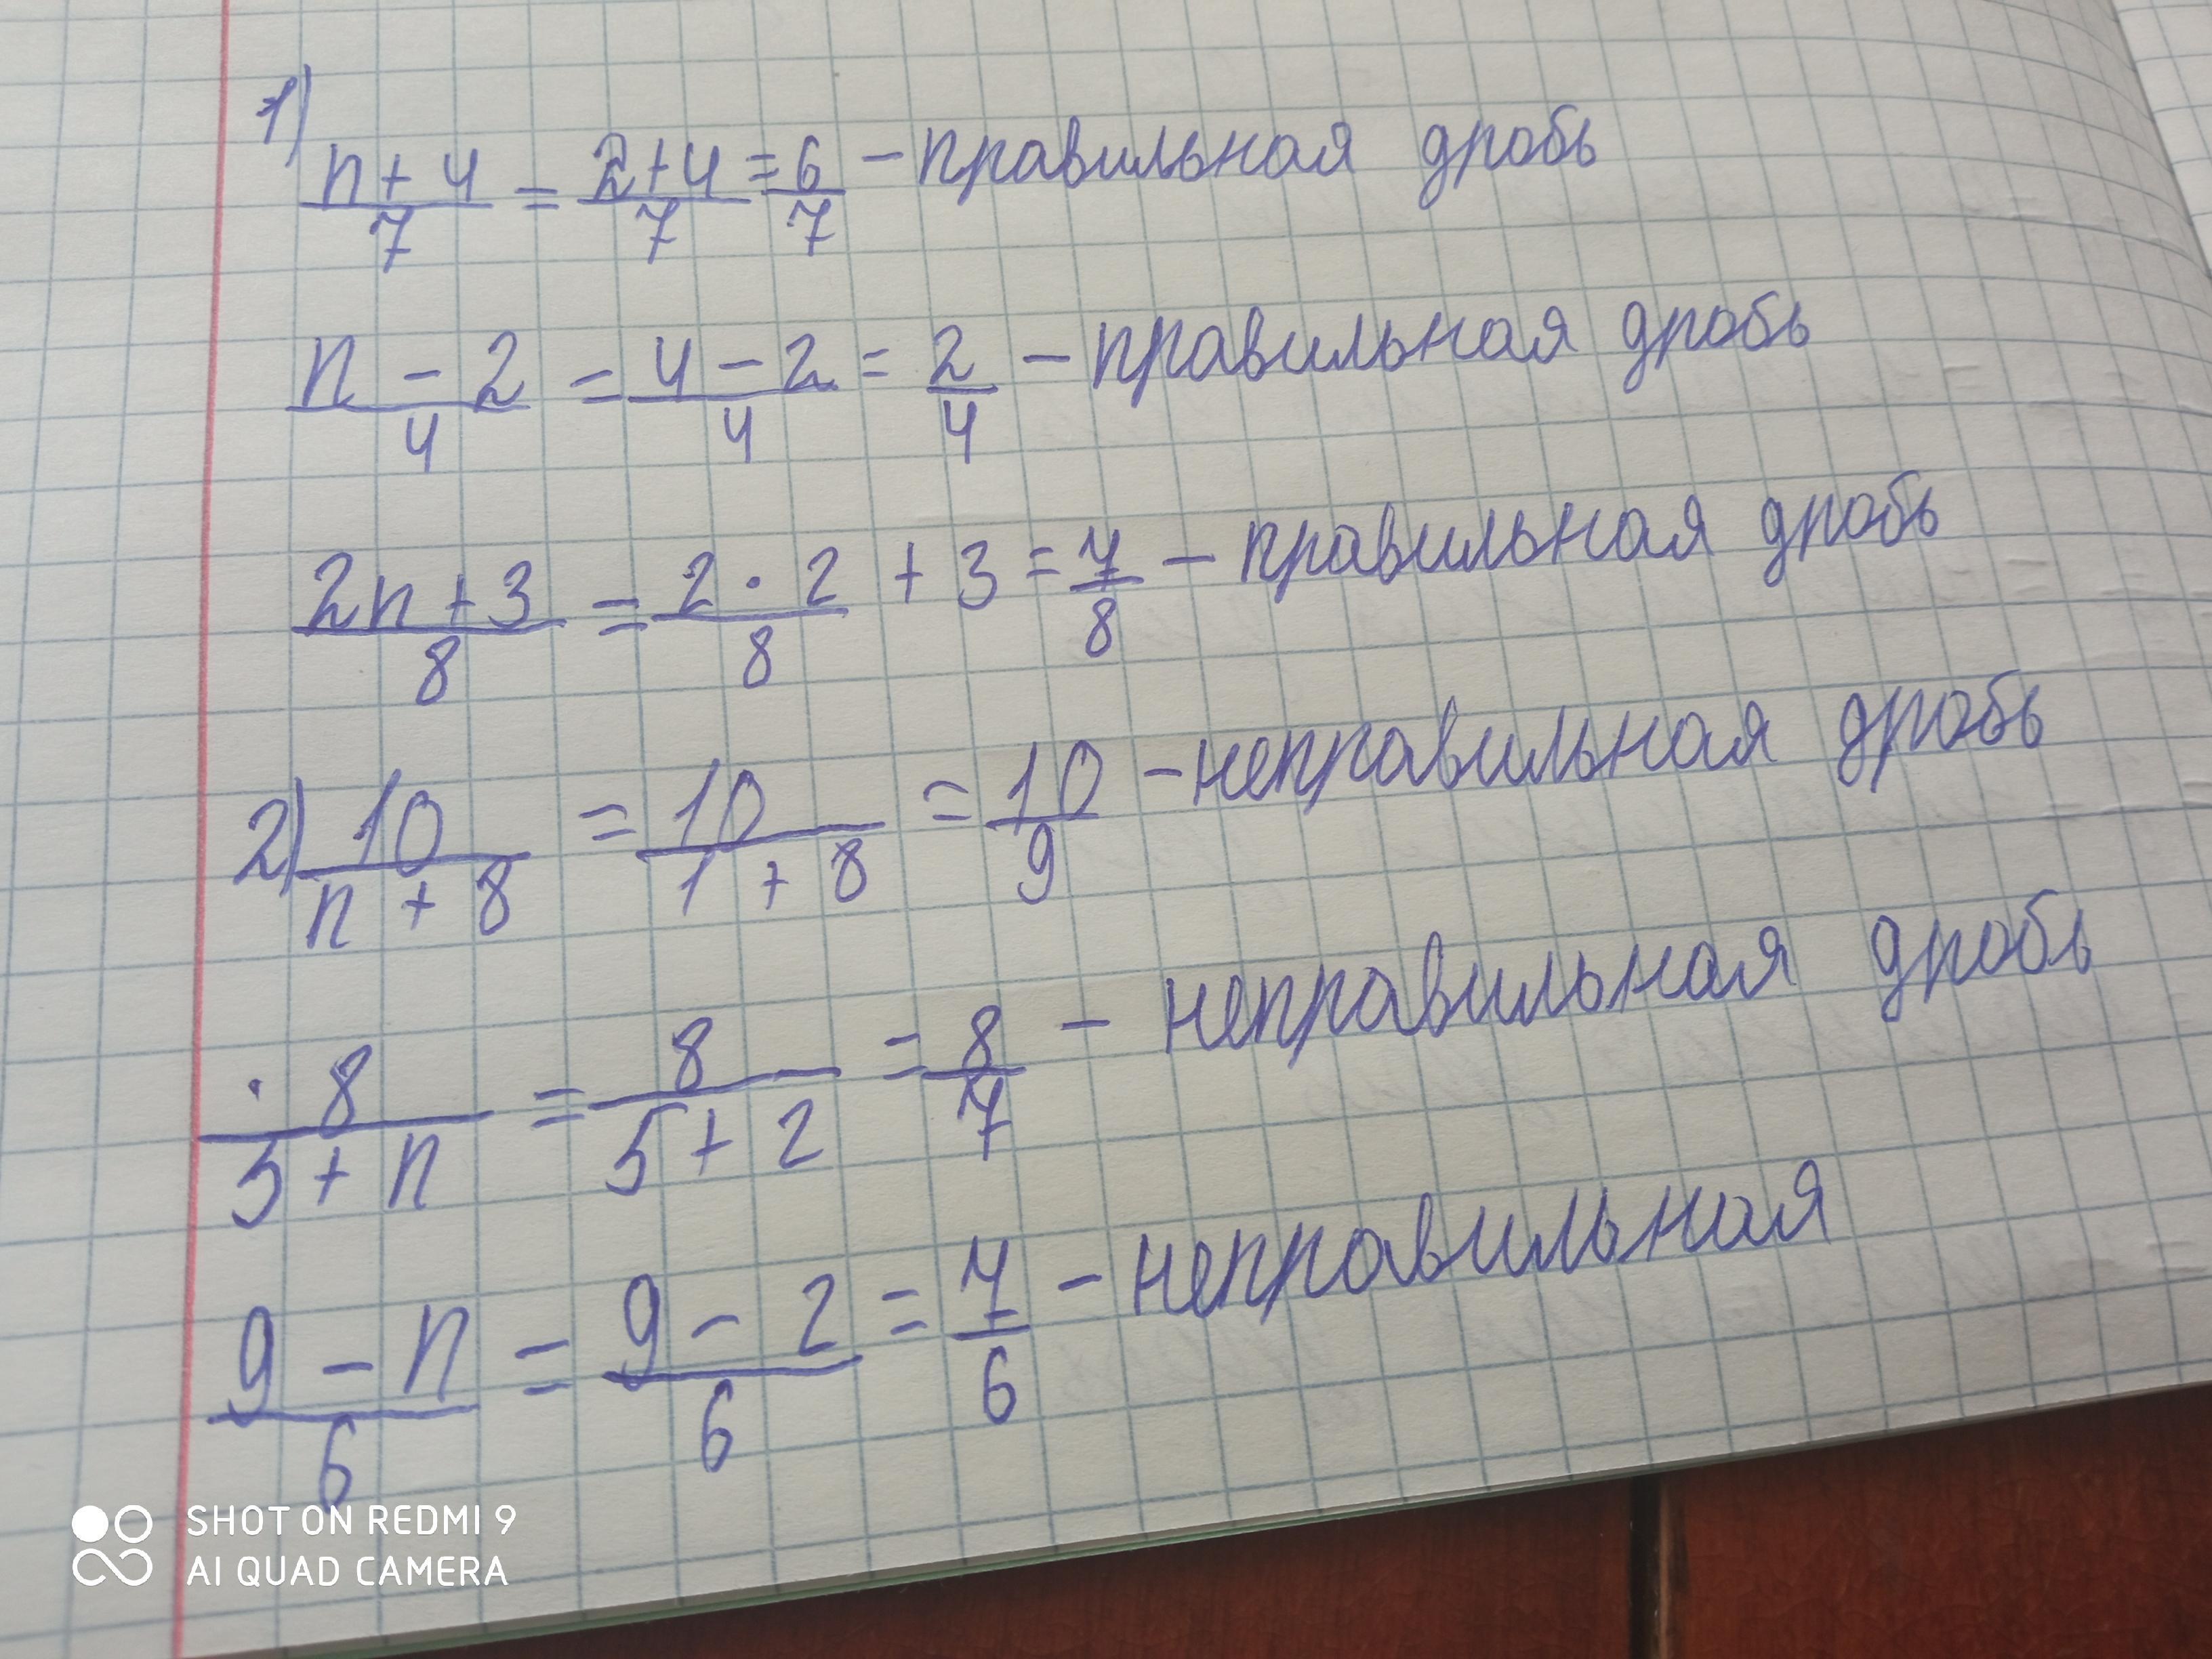 1) (n+4)/7 = (2+4)/7 = 6/7 – правильная дробь
(n – 2)/4 = (4 – 2)/4 = 2/4 – правильная дробь
(2n+3)/8 = (2 · 2)/8 + 3 = 7/8 – правильная дробь
2) 10/(n + 8) = 10/(1 + 8) = 10/9 – неправильная дробь
8/(5 + n) = 8/(5 + 2) = 8/7 – неправильная дробь
(9 – n)/6 = (9 – 2)/6 = 7/6 – неправильная
SHOT ON REDMI 9
AI QUAD CAMERA